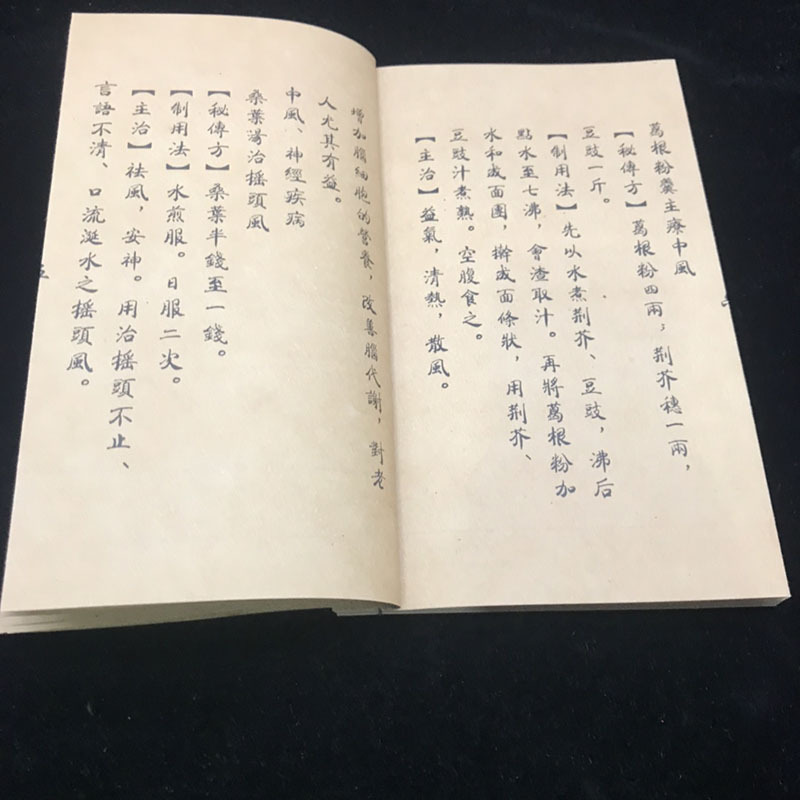 葛根粉羹主療中風
【秘傳方】葛根粉四兩；荆芥穗一兩，
豆豉一斤。
【制用法】先以水煮荆芥、豆豉，沸后
點水至七沸，會渣取汁。再將葛根粉加
水和成面團，擀成面條狀，用荆芥、
豆豉汁煮熱。空腹食之。
【主治】益氣，清熱，散風。
增加腦細胞的營養，改善腦代謝，對老
人尤其有益。
中風、神經疾病
桑葉湯治摇頭風
【秘傳方】桑葉半錢至一錢。
【制用法】水煎服。日服二次。
【主治】祛風，安神。用治摇頭不止、
言語不清、口流涎水之摇頭風。